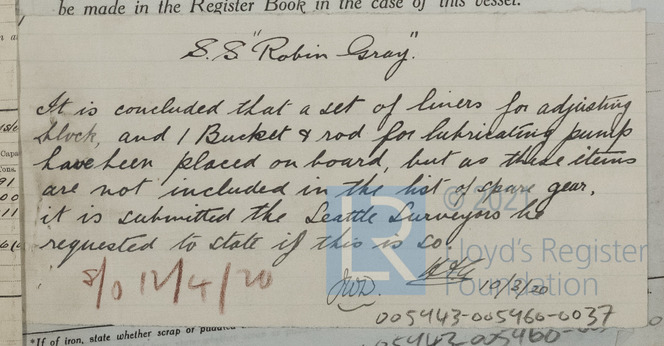 be made in the Register Book in the case of this vessel.
S.S "Robin Gray".
It is concluded that a set of liners for adjusting
block, and 1 Bucket & rod for lubricating pump
have been placed on board, but as these items
are not included in the list of spare gear,
it is submitted the Seattle Surveyors be
requested to state if this is so.
© 2021
Lloyd's Register
Foundation
LR
S/O 12/4/20
JWD.
10/3/20
005443-005460-0037
*If of iron, state whether scrap or puddled
005443-005460-